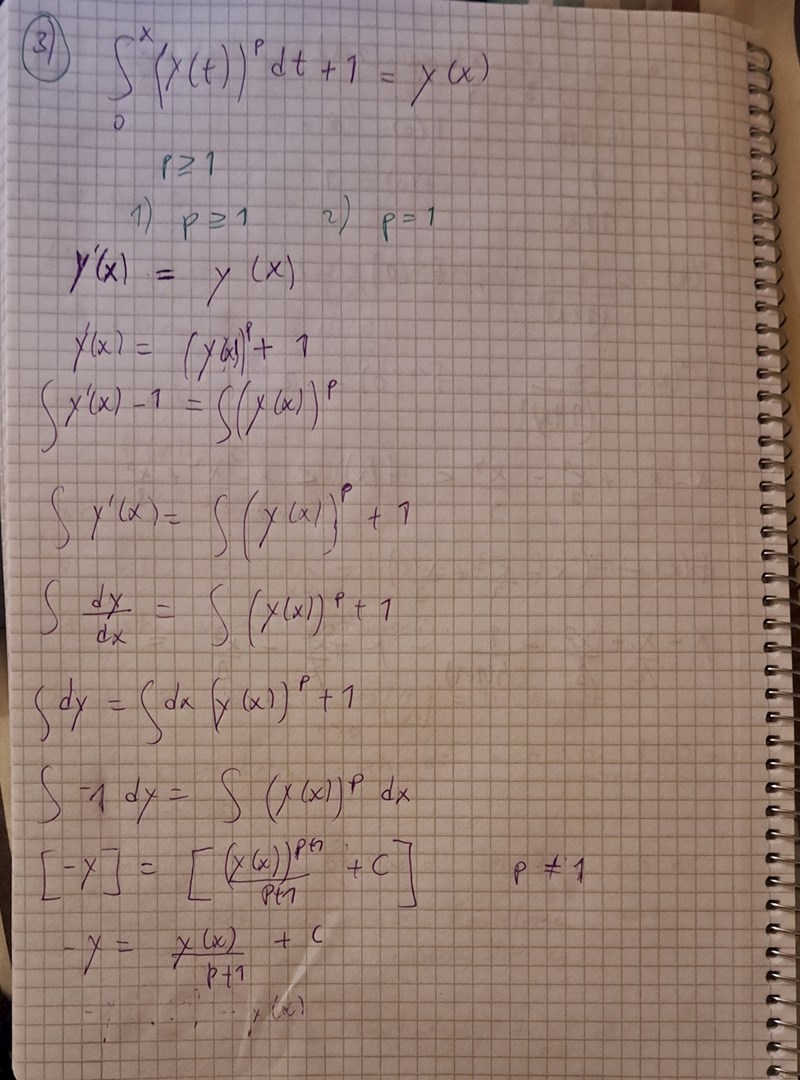 3) ∫₀ˣ (y(t))ᵖ dt + 1 = y(x)
p ≥ 1
1) p ≥ 1 2) p = 1
y'(x) = y(x)
y(x) = (y(x))ᵖ + 1
∫ y'(x) - 1 = ∫ (y(x))ᵖ
∫ y'(x) = ∫ (y(x))ᵖ + 1
∫ dy/dx = ∫ (y(x))ᵖ + 1
∫ dy = ∫ dx (y(x))ᵖ + 1
∫ -1 dy = ∫ (y(x))ᵖ dx
[-y] = [(y(x))ᵖ⁺¹/(p+1) + C] p ≠ 1
-y = y(x)/(p+1) + C
y(x)